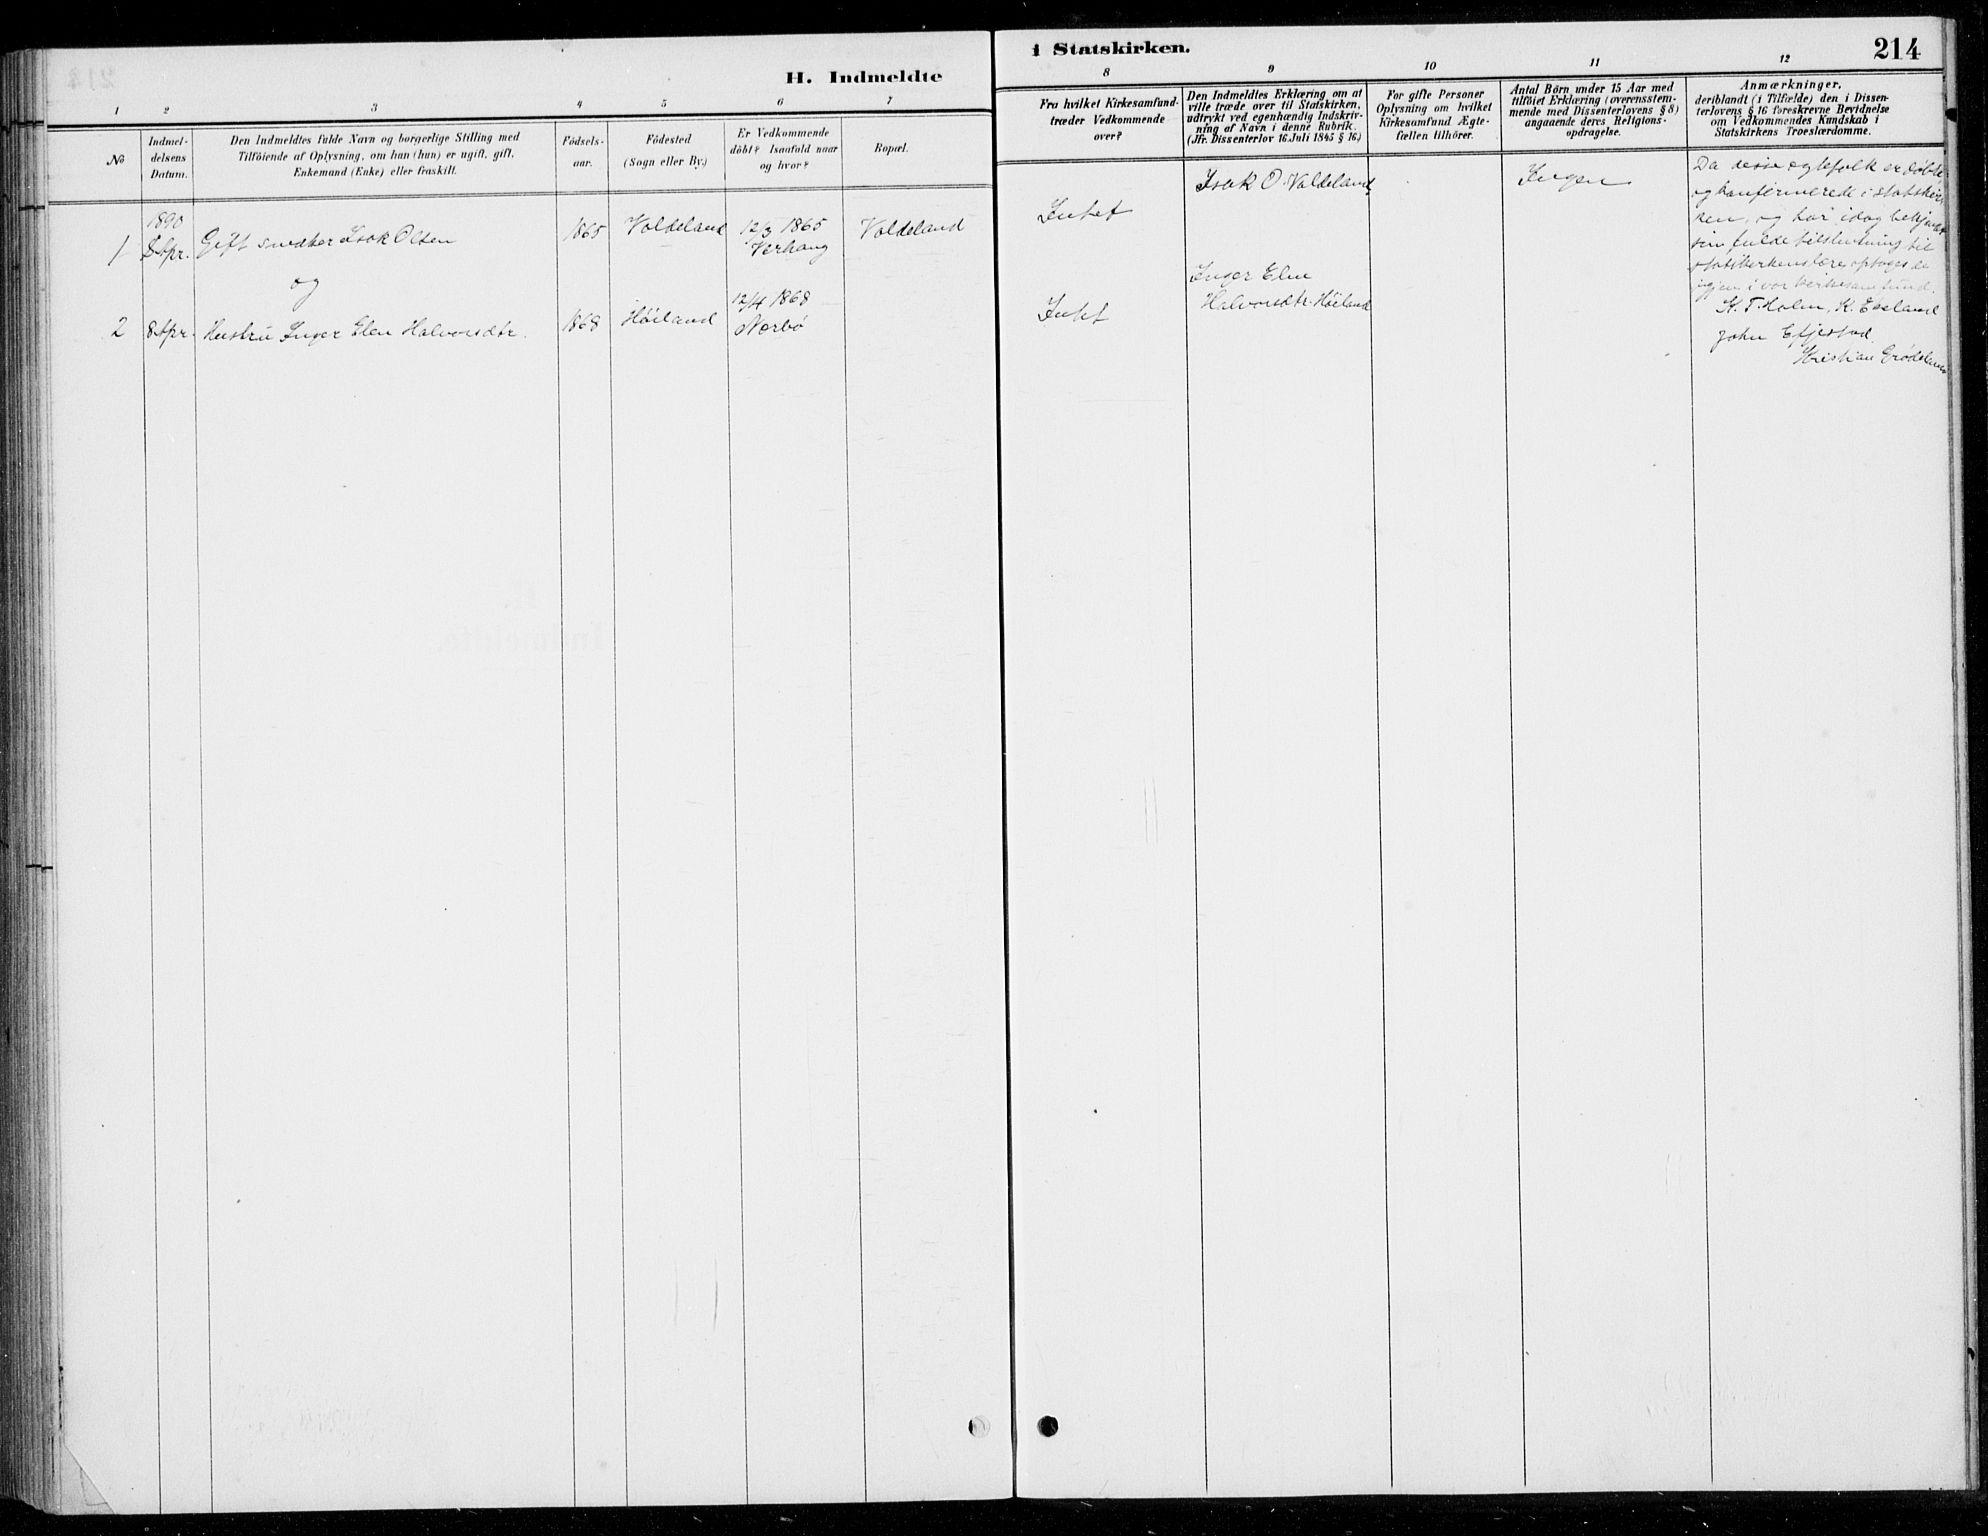 H. Indmeldte
i Statskirken.
214
1
2
3
4
5
6
7
8
9
10
11
12
No
Indmel-
delsens
Datum.
Den Indmeldtes fulde Navn og borgerlige Stilling med
Tilföiende af Oplysning, om han (hun) er ugift, gift,
Enkemand (Enke) eller fraskilt.
Födsels-
aar.
Födested
(Sogn eller By.)
Er Vedkommende
döbt? Isaafald naar
og hvor?
Bopæl.
Fra hvilket Kirkesamfund
træder Vedkommende
over?
Den Indmeldtes Erklæring om at
ville træde over til Statskirken,
udtrykt ved egenhændig Indskriv-
ning af Navn i denne Rubrik.
(Jfr. Dissenterlov 16 Juli 1845 § 16)
For gifte Personer
Oplysning om hvilket
Kirkesamfund Ægte-
fællen tilhörer.
Antal Börn under 15 Aar med
tilföiet Erklæring (overensstem-
mende med Dissenterlovens § 8)
angaaende deres Religions-
opdragelse.
Anmærkninger,
deriblandt (i Tilfælde) den i Dissen-
terlovens § 16 foreskrevne Bevidnelse
om Vedkommendes Kundskab i
Statskirkens Troeslærdomme.
1
1890
8 Apr.
Gift snedker Isak Olsen
1865
Voldeland
12/3 1865
Valdeland
Intet
Isak O. Valdeland
Ingen
Da disse egtefolk er döbte
og konfirmerede i statskir-
ken, og har idag bekjendt
sin fulde tilslutning til
statskirkens lære optages de
igjen i vor kirkesamfund.
K. T. Holm, K. Eeeland
John Efjestad
Kristian Grödeland
og
2
8 Apr.
Hustru Inger Elen Halvorsdtr.
1868
Höiland
12/4 1868
Nærbö
Intet
Inger Elen
Halvorsdtr. Höiland